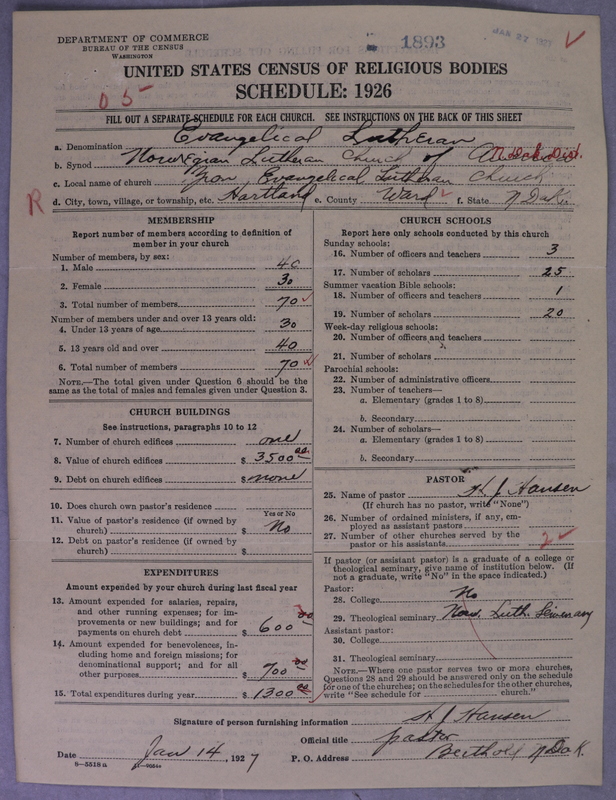 DEPARTMENT OF COMMERCE
BUREAU OF THE CENSUS
WASHINGTON
1893
JAN 27
UNITED STATES CENSUS OF RELIGIOUS BODIES
SCHEDULE: 1926
FILL OUT A SEPARATE SCHEDULE FOR EACH CHURCH. SEE INSTRUCTIONS ON THE BACK OF THIS SHEET
a. Denomination Evangelical Lutheran
b. Synod Norwegian Lutheran Church of America
c. Local name of church Zion Evangelical Lutheran Church
R d. City, town, village, or township, etc. Hartland e. County Ward f. State N Dak.
MEMBERSHIP
Report number of members according to definition of member in your church
Number of members, by sex:
1. Male 40
2. Female 30
3. Total number of members 70
Number of members under and over 13 years old:
4. Under 13 years of age 30
5. 13 years old and over 40
6. Total number of members 70
NOTE.—The total given under Question 6 should be the same as the total of males and females given under Question 3.
CHURCH BUILDINGS
See instructions, paragraphs 10 to 12
7. Number of church edifices one
8. Value of church edifices $ 3500 00
9. Debt on church edifices $ none
10. Does church own pastor's residence
Yes or No
11. Value of pastor's residence (if owned by church) $ No
12. Debt on pastor's residence (if owned by church) $
EXPENDITURES
Amount expended by your church during last fiscal year
13. Amount expended for salaries, repairs, and other running expenses; for improvements or new buildings; and for payments on church debt $ 600 00
14. Amount expended for benevolences, including home and foreign missions; for denominational support; and for all other purposes $ 700 00
15. Total expenditures during year $ 1300 00
CHURCH SCHOOLS
Report here only schools conducted by this church
Sunday schools:
16. Number of officers and teachers 3
17. Number of scholars 25
Summer vacation Bible schools:
18. Number of officers and teachers 1
19. Number of scholars 20
Week-day religious schools:
20. Number of officers and teachers
21. Number of scholars
Parochial schools:
22. Number of administrative officers
23. Number of teachers—
a. Elementary (grades 1 to 8)
b. Secondary
24. Number of scholars—
a. Elementary (grades 1 to 8)
b. Secondary
PASTOR
25. Name of pastor H. J. Hansen
(If church has no pastor, write "None")
26. Number of ordained ministers, if any, employed as assistant pastors
27. Number of other churches served by the pastor or his assistants 2
If pastor (or assistant pastor) is a graduate of a college or theological seminary, give name of institution below. (If not a graduate, write "No" in the space indicated.)
Pastor:
28. College No
29. Theological seminary Norw. Luth. Seminary
Assistant pastor:
30. College
31. Theological seminary
NOTE.—Where one pastor serves two or more churches, Questions 28 and 29 should be answered only on the schedule for one of the churches; on the schedules for the other churches, write "See schedule for church."
Signature of person furnishing information H J Hansen
Official title pastor
Date Jan 14, 1927 P. O. Address Berthold N Dak.
8—5518a